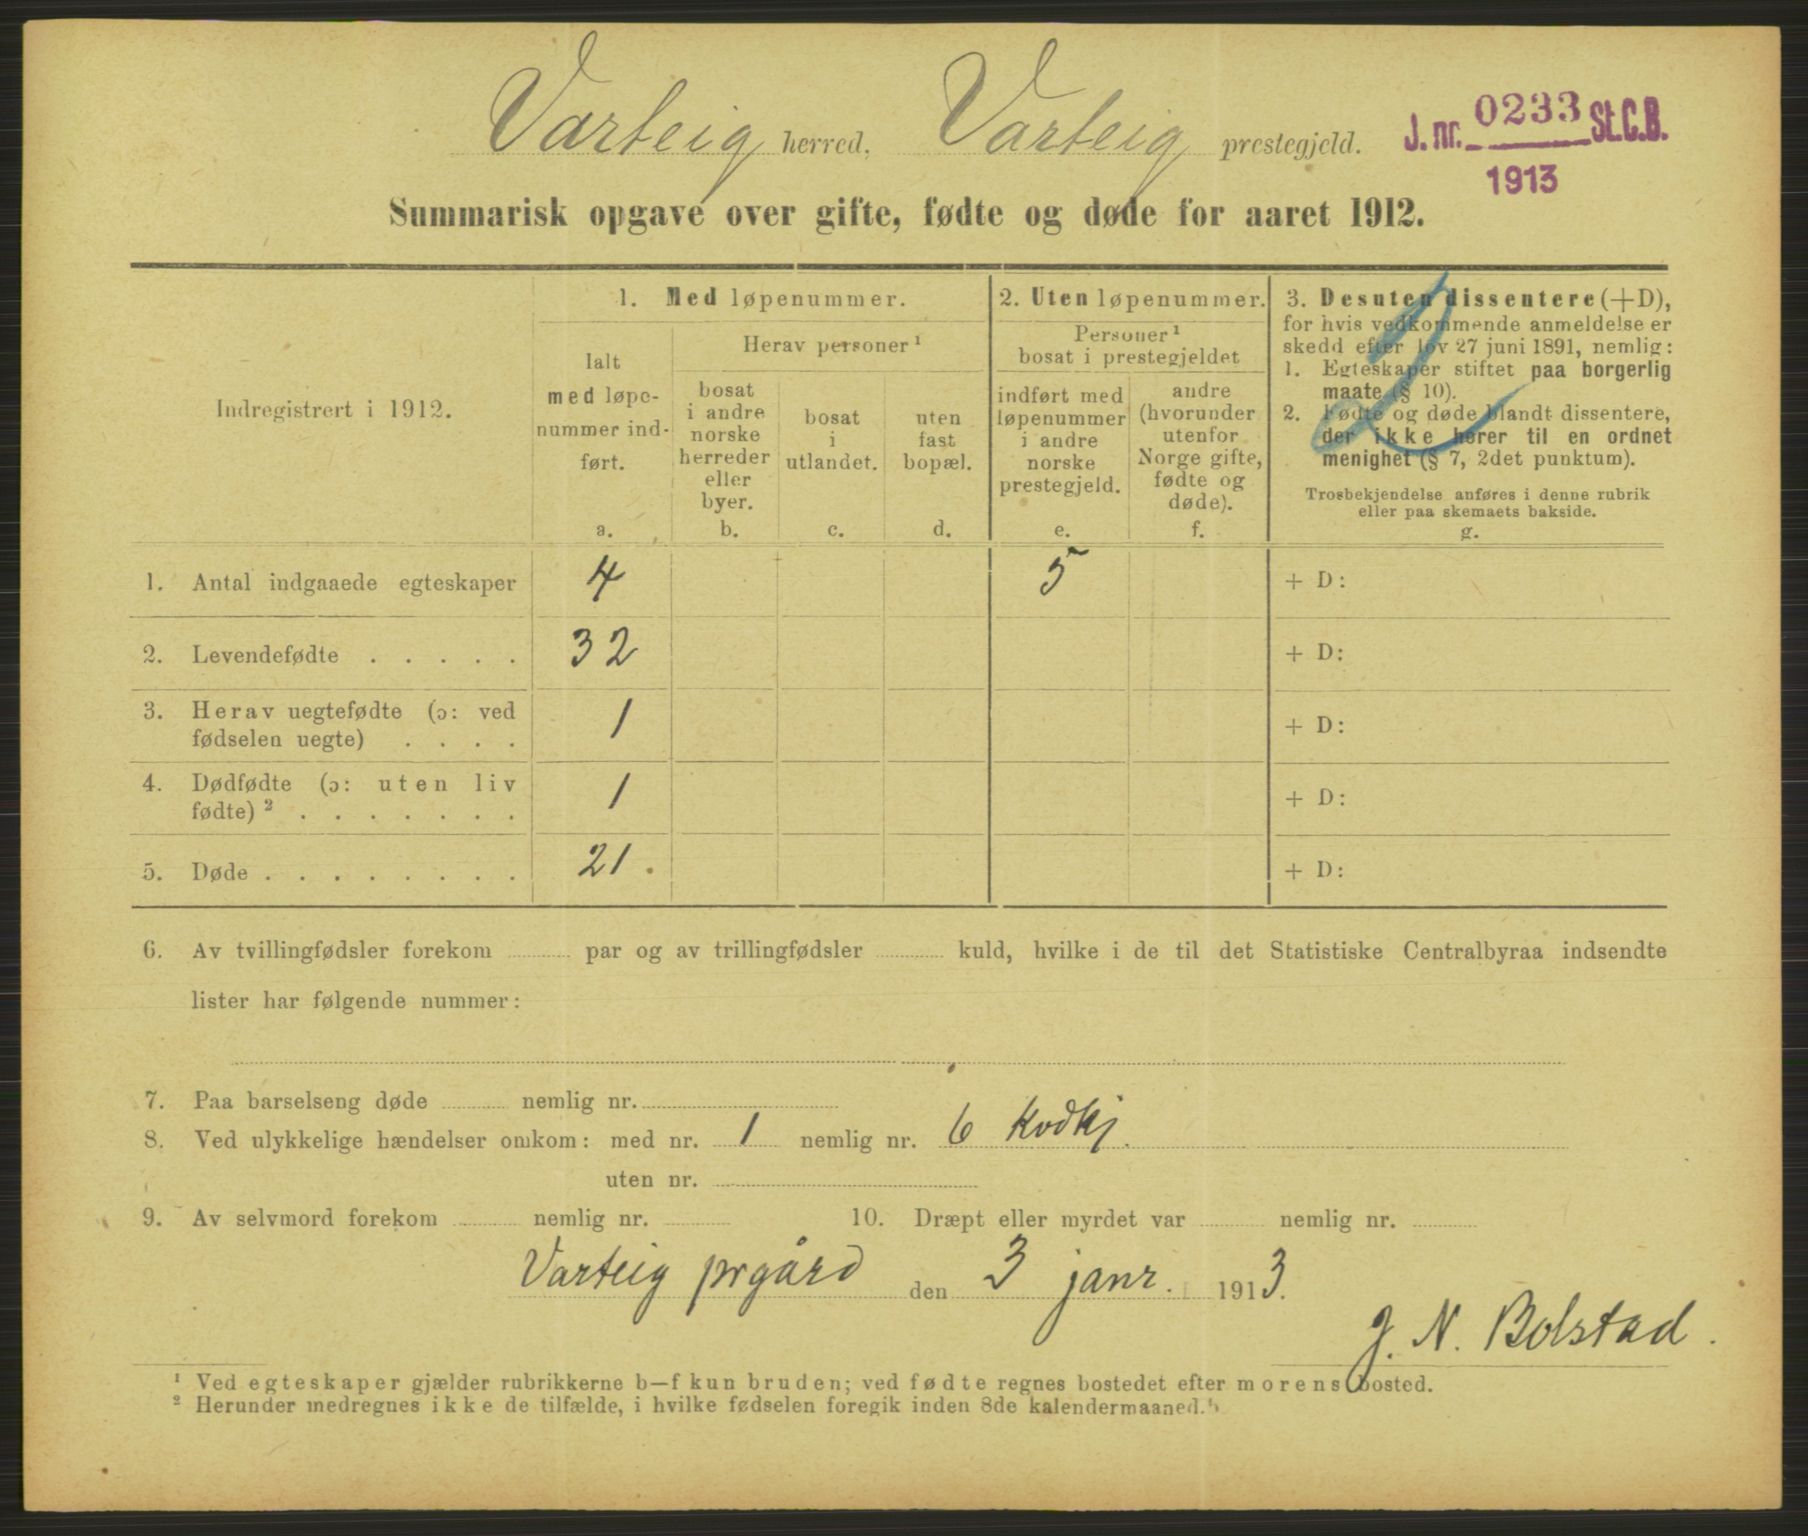 Varteig herred, Varteig prestegjeld.
J. nr. 0233 St.C.B.
1913
Summarisk opgave over gifte, fødte og døde for aaret 1912.
Indregistrert i 1912.
1. Med løpenummer.
Ialt
med løpe-
nummer ind-
ført.
a.
Herav personer ¹
bosat
i andre
norske
herreder
eller
byer.
b.
bosat
i
utlandet.
c.
uten
fast
bopæl.
d.
2. Uten løpenummer.
Personer ¹
bosat i prestegjeldet
indført med
løpenummer
i andre
norske
prestegjeld.
e.
andre
(hvorunder
utenfor
Norge gifte,
fødte og
døde).
f.
3. Desuten dissentere (+D),
for hvis vedkommende anmeldelse er
skedd efter lov 27 juni 1891, nemlig:
1. Egteskaper stiftet paa borgerlig
maate (§ 10).
2. Fødte og døde blandt dissentere,
der ikke hører til en ordnet
menighet (§ 7, 2det punktum).
Trosbekjendelse anføres i denne rubrik
eller paa skemaets bakside.
g.
1. Antal indgaaede egteskaper 4 5 + D:
2. Levendefødte . . . . . 32 + D:
3. Herav uegtefødte (ɔ: ved
fødselen uegte) . . . . 1 + D:
4. Dødfødte (ɔ: uten liv
fødte) ² . . . . . . . 1 + D:
5. Døde . . . . . . . . 21 . + D:
6. Av tvillingfødsler forekom par og av trillingfødsler kuld, hvilke i de til det Statistiske Centralbyraa indsendte
lister har følgende nummer:
7. Paa barselseng døde nemlig nr.
8. Ved ulykkelige hændelser omkom: med nr. 1 nemlig nr. 6 Kvdkj.
uten nr.
9. Av selvmord forekom nemlig nr. 10. Dræpt eller myrdet var nemlig nr.
Varteig prgård den 3 janr. 1913.
J. N. Bolstad.
¹ Ved egteskaper gjælder rubrikkerne b—f kun bruden; ved fødte regnes bostedet efter morens bosted.
² Herunder medregnes ikke de tilfælde, i hvilke fødselen foregik inden 8de kalendermaaned.